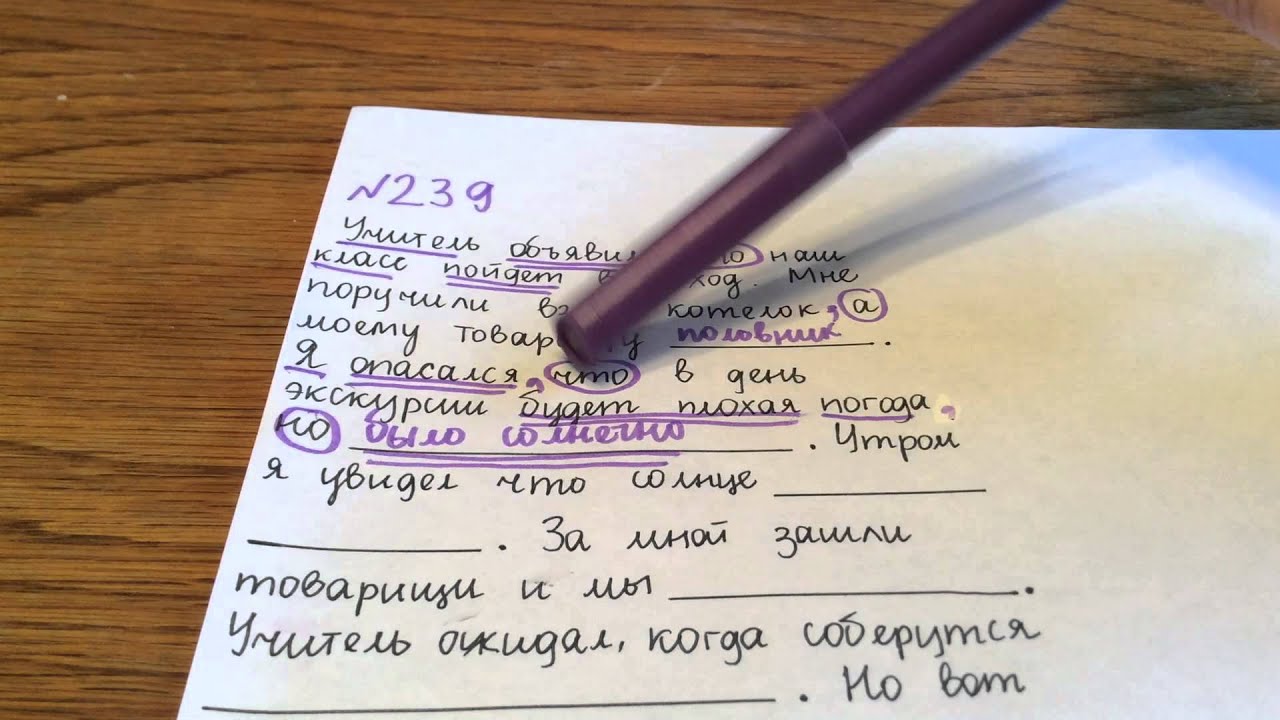 №239
Учитель объявил наш
класс пойдет ход. Мне
поручили котелок, а
моему половник.
Я опасался, что в день
экскурсии будет плохая погода,
но было солнечно. Утром
я увидел что солнце
. За мной зашли
товарищи и мы .
Учитель ожидал, когда соберутся
. Но вот